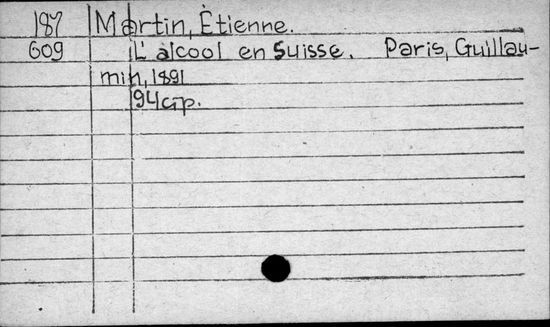 187 Martin, Étienne.
609 L'alcool en Suisse. Paris, Guillau-
min, 1891
94 p.